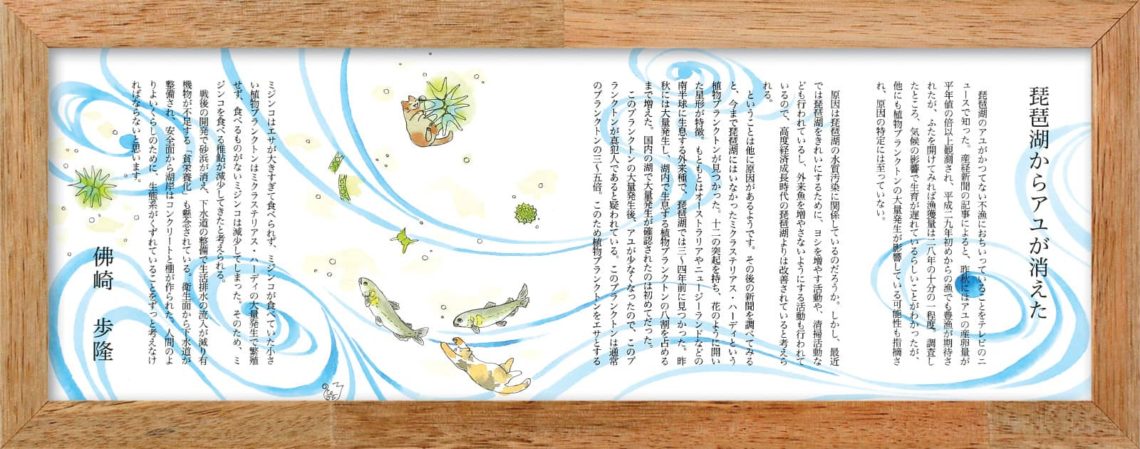 琵琶湖からアユが消えた
琵琶湖のアユがかつてない不漁におちいっていることをテレビのニ
ュースで知った。産経新聞の記事によると、昨秋にはアユの産卵量が
平年値の倍以上観測され、平成二九年初めからの漁でも豊漁が期待さ
れたが、ふたを開けてみれば漁獲量は二八年の十分の一程度。調査し
たところ、気候の影響で生育が遅れているらしいことがわかったが、
他にも植物プランクトンの大量発生が影響している可能性も指摘さ
れ、原因の特定には至っていない。
原因は琵琶湖の水質汚染に関係しているのだろうか。しかし、最近
では琵琶湖をきれいにするために、ヨシを増やす活動や、清掃活動な
ども行われているし、外来魚を増やさないようにする活動も行われて
いるので、高度経済成長時代の琵琶湖よりは改善されていると考えら
れる。
ということは他に原因があるようです。その後の新聞を調べてみる
と、今まで琵琶湖にはいなかったミクラステリアス・ハーディという
植物プランクトンが見つかった。十二の突起を持ち、花のように開い
た星形が特徴。もともとはオーストラリアやニュージーランドなどの
南半球に生息する外来種で、琵琶湖では三~四年前に見つかった。昨
秋には大量発生し、湖内で生息する植物プランクトンの八割を占める
まで増えた。国内の湖で大量発生が確認されたのは初めてだった。
このプランクトンの大量発生後、アユが少なくなったので、このプ
ランクトンが真犯人であると疑われている。このプランクトンは通常
のプランクトンの三~五倍、このため植物プランクトンをエサとする
ミジンコはエサが大きすぎて食べられず、ミジンコが食べていた小さ
い植物プランクトンはミクラステリアス・ハーディの大量発生で繁殖
せず、食べるものがないミジンコは減少してしまった。そのため、ミ
ジンコを食べる稚鮎が減少してきたと考えられる。
戦後の開発で砂浜が消え、下水道の整備で生活排水の流入が減り有
機物が不足する「貧栄養化」も懸念されている。衛生面から下水道が
整備され、安全面から湖岸はコンクリートと柵が作られた。人間のよ
りよいくらしのために、生態系がくずれていることをずっと考えなけ
ればならないと思います。
佛崎 歩隆